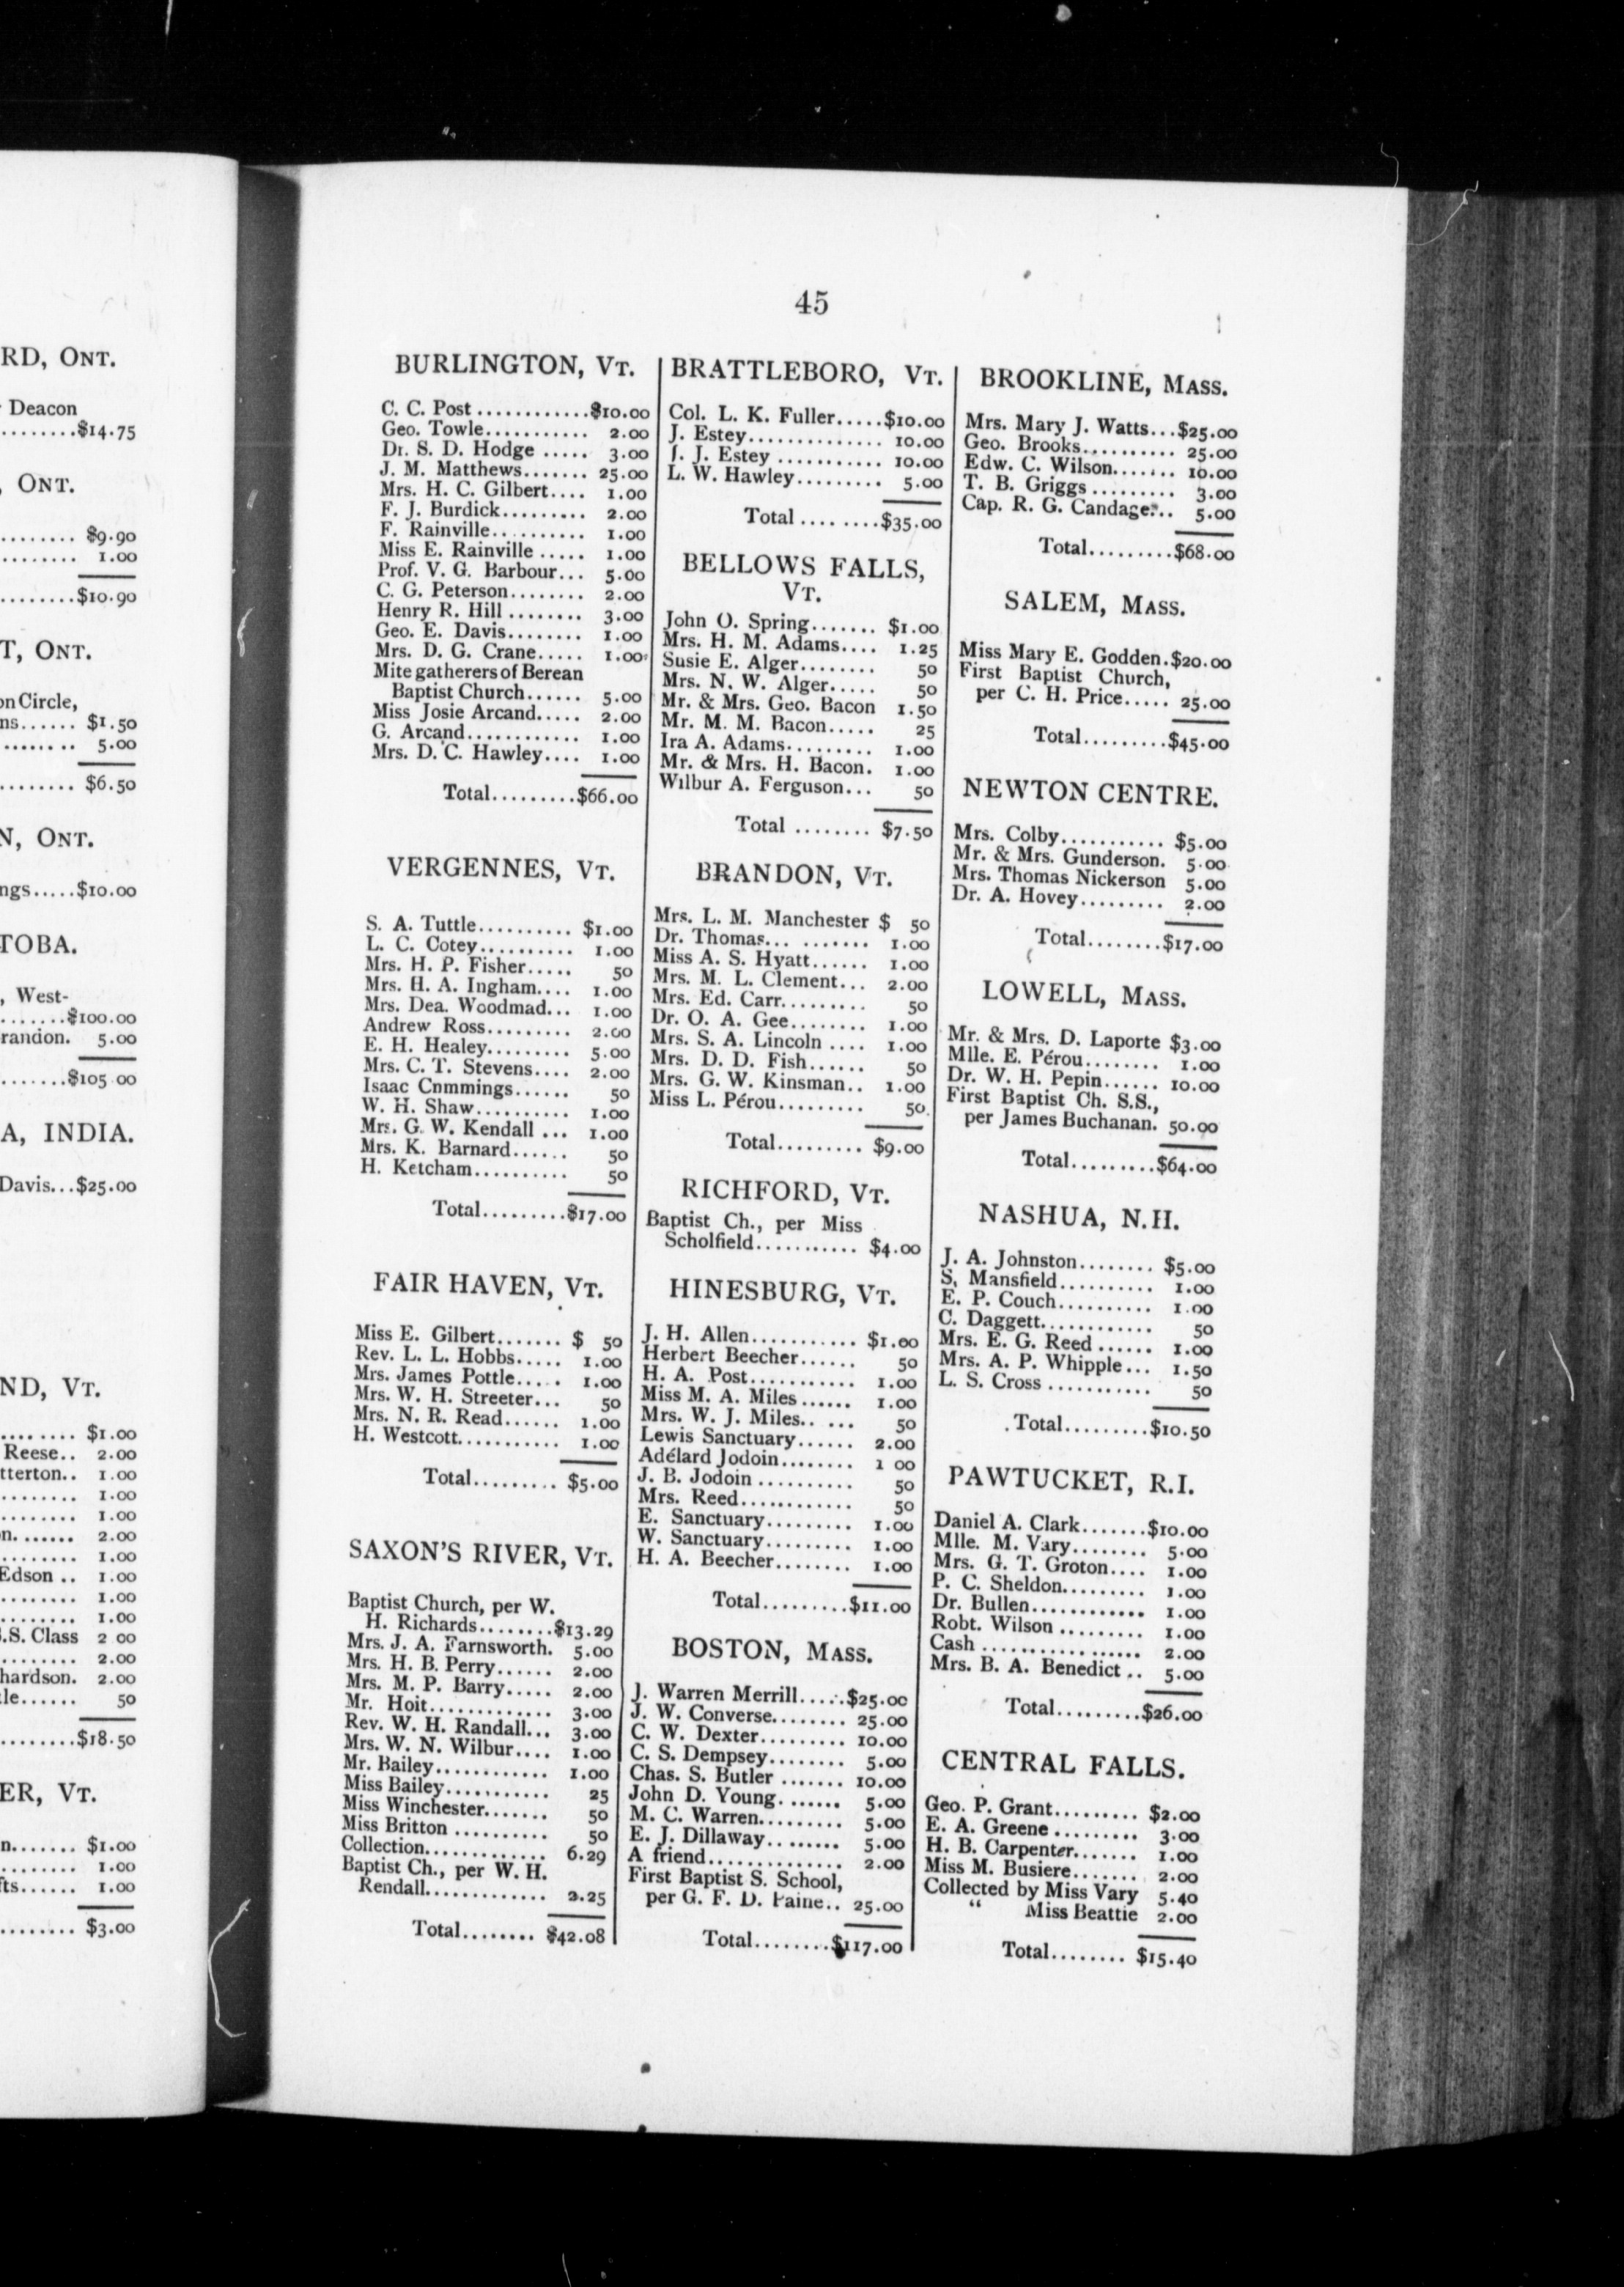 RD, ONT.
Deacon
........$14.75
, ONT.
........ $9.90
......... 1.00
........$10.90
T, ONT.
on Circle,
ns...... $1.50
........ 5.00
........ $6.50
N, ONT.
ngs.....$10.00
TOBA.
, West-
.......$100.00
randon. 5.00
.......$105 00
A, INDIA.
Davis...$25.00
ND, VT.
........ $1.00
Reese.. 2.00
tterton.. 1.00
........ 1.00
........ 1.00
n...... 2.00
........ 1.00
Edson .. 1.00
........ 1.00
........ 1.00
.S. Class 2 00
........ 2.00
hardson. 2.00
le...... 50
........$18.50
ER, VT.
n....... $1.00
........ 1.00
fts...... 1.00
........ $3.00
45
BURLINGTON, VT.
C. C. Post ............$10.00
Geo. Towle........... 2.00
Dr. S. D. Hodge ..... 3.00
J. M. Matthews....... 25.00
Mrs. H. C. Gilbert.... 1.00
F. J. Burdick......... 2.00
F. Rainville.......... 1.00
Miss E. Rainville ..... 1.00
Prof. V. G. Barbour... 5.00
C. G. Peterson........ 2.00
Henry R. Hill ........ 3.00
Geo. E. Davis........ 1.00
Mrs. D. G. Crane..... 1.00
Mite gatherers of Berean
Baptist Church...... 5.00
Miss Josie Arcand..... 2.00
G. Arcand............ 1.00
Mrs. D. C. Hawley.... 1.00
Total.........$66.00
VERGENNES, VT.
S. A. Tuttle.......... $1.00
L. C. Cotey.......... 1.00
Mrs. H. P. Fisher..... 50
Mrs. H. A. Ingham.... 1.00
Mrs. Dea. Woodmad... 1.00
Andrew Ross......... 2.00
E. H. Healey......... 5.00
Mrs. C. T. Stevens.... 2.00
Isaac Cnmmings...... 50
W. H. Shaw.......... 1.00
Mrs. G. W. Kendall ... 1.00
Mrs. K. Barnard...... 50
H. Ketcham.......... 50
Total.........$17.00
FAIR HAVEN, VT.
Miss E. Gilbert....... $ 50
Rev. L. L. Hobbs..... 1.00
Mrs. James Pottle..... 1.00
Mrs. W. H. Streeter... 50
Mrs. N. R. Read...... 1.00
H. Westcott........... 1.00
Total......... $5.00
SAXON'S RIVER, VT.
Baptist Church, per W.
H. Richards........$13.29
Mrs. J. A. Farnsworth. 5.00
Mrs. H. B. Perry...... 2.00
Mrs. M. P. Barry..... 2.00
Mr. Hoit............. 3.00
Rev. W. H. Randall... 3.00
Mrs. W. N. Wilbur.... 1.00
Mr. Bailey............ 1.00
Miss Bailey........... 25
Miss Winchester....... 50
Miss Britton .......... 50
Collection............. 6.29
Baptist Ch., per W. H.
Rendall............. 2.25
Total........ $42.08
BRATTLEBORO, VT.
Col. L. K. Fuller.....$10.00
J. Estey.............. 10.00
J. J. Estey ........... 10.00
L. W. Hawley......... 5.00
Total ........$35.00
BELLOWS FALLS,
VT.
John O. Spring....... $1.00
Mrs. H. M. Adams.... 1.25
Susie E. Alger........ 50
Mrs. N. W. Alger..... 50
Mr. & Mrs. Geo. Bacon 1.50
Mr. M. M. Bacon..... 25
Ira A. Adams......... 1.00
Mr. & Mrs. H. Bacon. 1.00
Wilbur A. Ferguson... 50
Total ........ $7.50
BRANDON, VT.
Mrs. L. M. Manchester $ 50
Dr. Thomas... ....... 1.00
Miss A. S. Hyatt...... 1.00
Mrs. M. L. Clement... 2.00
Mrs. Ed. Carr......... 50
Dr. O. A. Gee........ 1.00
Mrs. S. A. Lincoln .... 1.00
Mrs. D. D. Fish...... 50
Mrs. G. W. Kinsman.. 1.00
Miss L. Pérou......... 50
Total......... $9.00
RICHFORD, VT.
Baptist Ch., per Miss
Scholfield........... $4.00
HINESBURG, VT.
J. H. Allen........... $1.00
Herbert Beecher...... 50
H. A. Post........... 1.00
Miss M. A. Miles ...... 1.00
Mrs. W. J. Miles.. ... 50
Lewis Sanctuary...... 2.00
Adélard Jodoin........ 1 00
J. B. Jodoin .......... 50
Mrs. Reed............ 50
E. Sanctuary......... 1.00
W. Sanctuary......... 1.00
H. A. Beecher........ 1.00
Total.........$11.00
BOSTON, MASS.
J. Warren Merrill.....$25.00
J. W. Converse........ 25.00
C. W. Dexter......... 10.00
C. S. Dempsey........ 5.00
Chas. S. Butler ....... 10.00
John D. Young. ...... 5.00
M. C. Warren......... 5.00
E. J. Dillaway........ 5.00
A friend.............. 2.00
First Baptist S. School,
per G. F. D. Paine.. 25.00
Total........$117.00
BROOKLINE, MASS.
Mrs. Mary J. Watts...$25.00
Geo. Brooks.......... 25.00
Edw. C. Wilson....... 10.00
T. B. Griggs ......... 3.00
Cap. R. G. Candage... 5.00
Total.........$68.00
SALEM, MASS.
Miss Mary E. Godden.$20.00
First Baptist Church,
per C. H. Price..... 25.00
Total.........$45.00
NEWTON CENTRE.
Mrs. Colby........... $5.00
Mr. & Mrs. Gunderson. 5.00
Mrs. Thomas Nickerson 5.00
Dr. A. Hovey......... 2.00
Total........$17.00
LOWELL, MASS.
Mr. & Mrs. D. Laporte $3.00
Mlle. E. Pérou........ 1.00
Dr. W. H. Pepin...... 10.00
First Baptist Ch. S.S.,
per James Buchanan. 50.00
Total.........$64.00
NASHUA, N.H.
J. A. Johnston........ $5.00
S. Mansfield.......... 1.00
E. P. Couch.......... 1.00
C. Daggett............ 50
Mrs. E. G. Reed ...... 1.00
Mrs. A. P. Whipple... 1.50
L. S. Cross ........... 50
Total.........$10.50
PAWTUCKET, R.I.
Daniel A. Clark.......$10.00
Mlle. M. Vary........ 5.00
Mrs. G. T. Groton.... 1.00
P. C. Sheldon......... 1.00
Dr. Bullen............ 1.00
Robt. Wilson ......... 1.00
Cash ................. 2.00
Mrs. B. A. Benedict .. 5.00
Total.........$26.00
CENTRAL FALLS.
Geo. P. Grant......... $2.00
E. A. Greene ......... 3.00
H. B. Carpenter....... 1.00
Miss M. Busiere....... 2.00
Collected by Miss Vary 5.40
“ Miss Beattie 2.00
Total........ $15.40